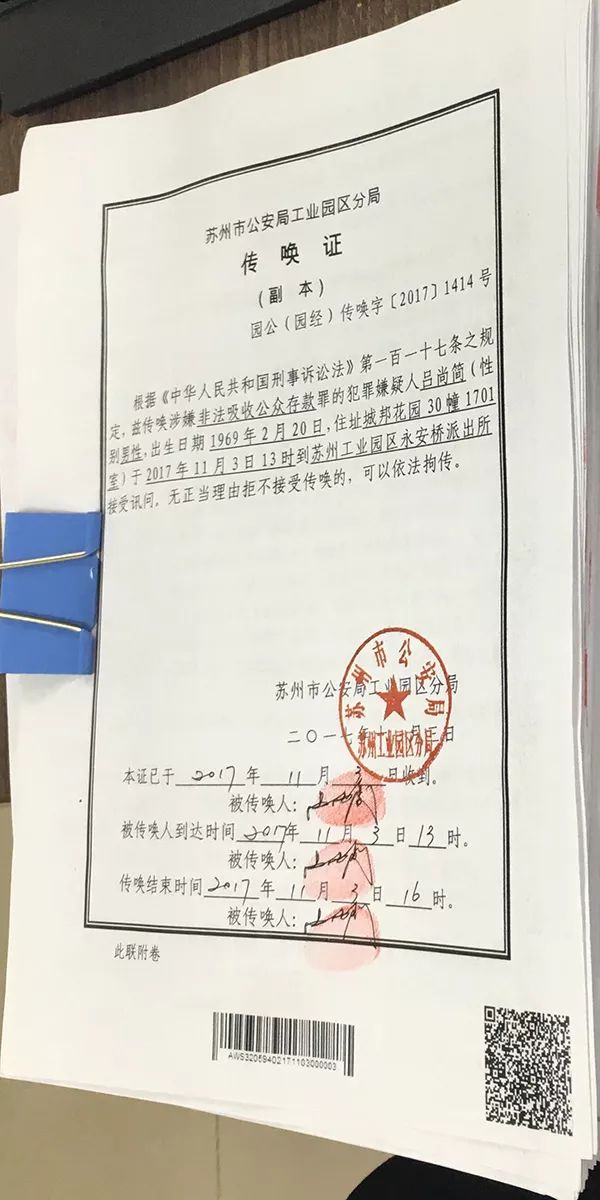 苏州市公安局工业园区分局
传唤证
（副本）
园公（园经）传唤字〔2017〕1414号
根据《中华人民共和国刑事诉讼法》第一百一十七条之规
定，兹传唤涉嫌非法吸收公众存款罪的犯罪嫌疑人吕尚简（性
别男性，出生日期1969年2月20日，住址城邦花园30幢1701
室）于2017年11月3日13时到苏州工业园区永安桥派出所
接受讯问。无正当理由拒不接受传唤的，可以依法拘传。
苏州市公安局工业园区分局
苏州市公安局
苏州工业园区分局
二〇一七年 月三日
本证已于2017年11月3日收到。
被传唤人：
被传唤人到达时间2017年11月3日13时。
被传唤人：
传唤结束时间2017年11月3日16时。
被传唤人：
此联附卷
AWS32059402171103000003